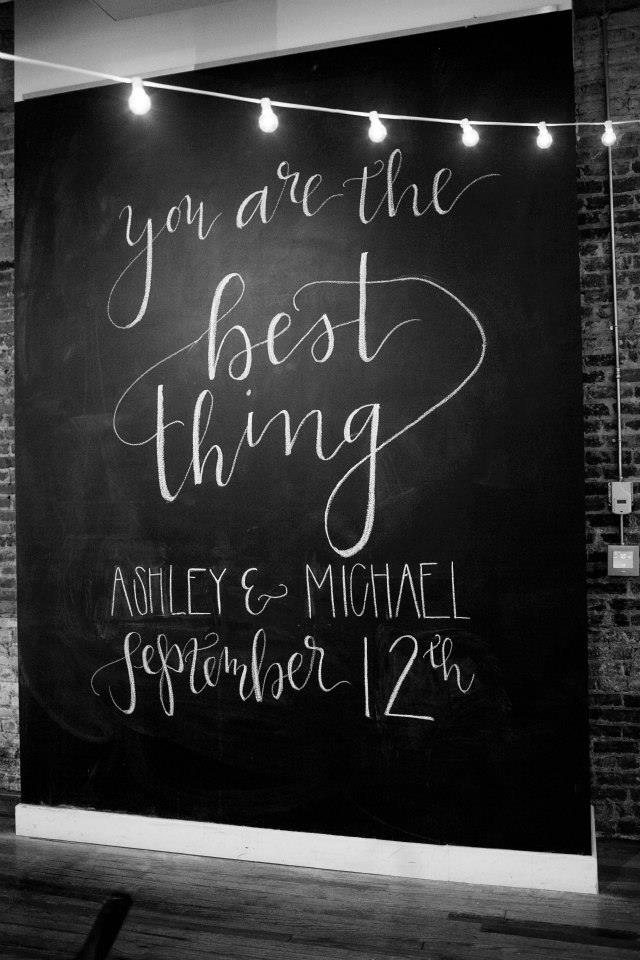 you are the
best
thing
ASHLEY & MICHAEL
September 12th